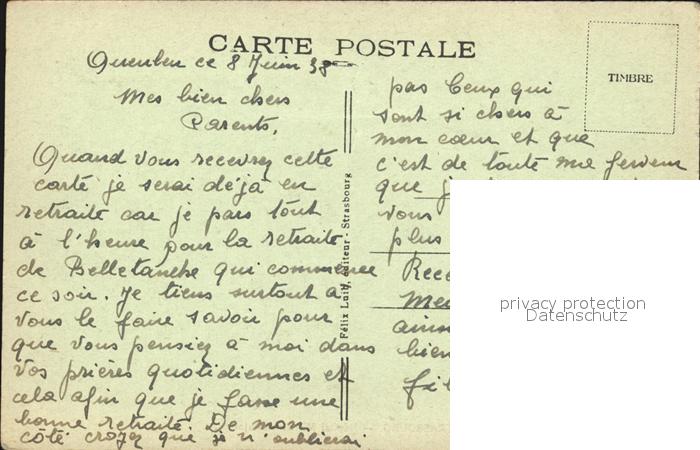 CARTE POSTALE
TIMBRE
ce 8 Juin 38
Mes bien chers
Parents,
Quand vous recevrez cette
carte je serai déjà en
retraite car je pars tout
à l'heure pour la retraite
de Belletanche qui commence
ce soir. Je tiens surtout à
vous le faire savoir pour
que vous pensiez à moi dans
vos prières quotidiennes et
cela afin que je fasse une
bonne retraite. De mon
côté croyez que je n'oublierai
Félix Luib, éditeur - Strasbourg
pas Ceux qui
sont si chers à
mon cœur et que
c'est de toute ma ferveur
que
vous
plus
Rece
Mei
bien
privacy protection
Datenschutz